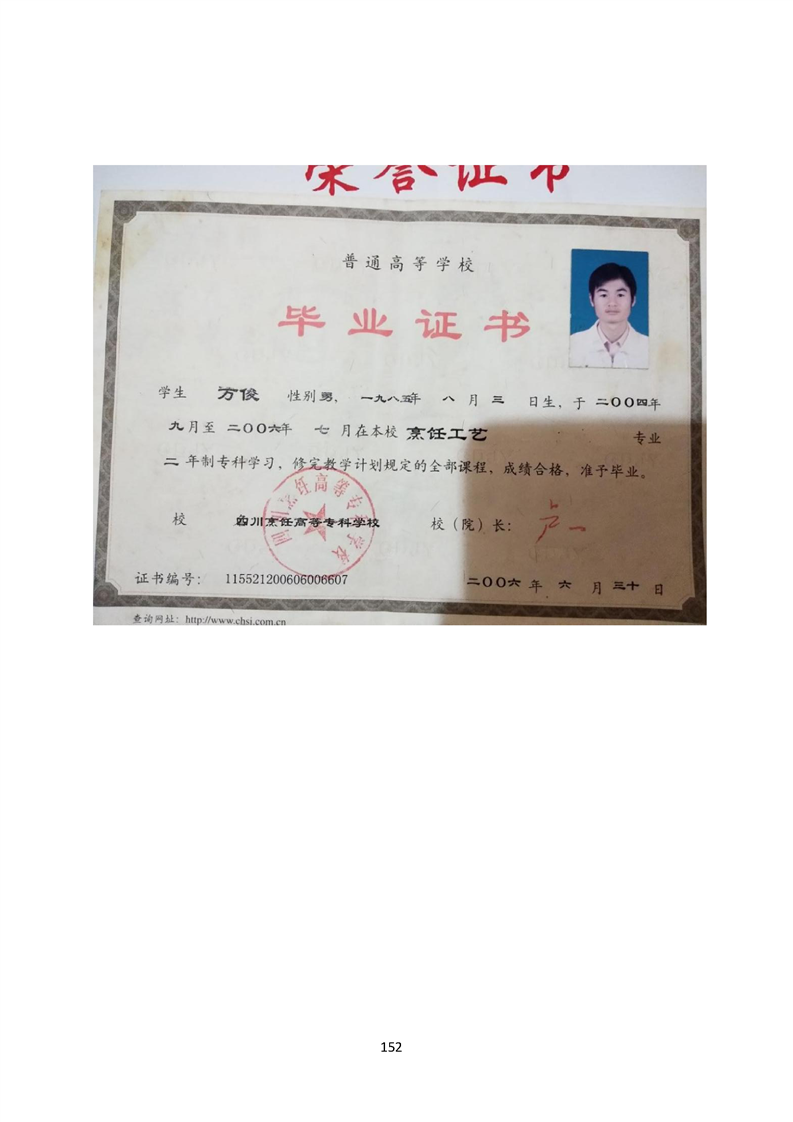 荣誉证书
普通高等学校
毕业证书
学生 方俊 性别 男, 一九八五年 八 月 三 日生, 于 二〇〇四年
九 月至 二〇〇六年 七 月在本校 烹饪工艺 专业
二 年制专科学习, 修完教学计划规定的全部课程, 成绩合格, 准予毕业。
校 名 四川烹饪高等专科学校 校（院）长: 卢一
四川烹饪高等专科学校
证书编号: 115521200606006607 二〇〇六 年 六 月 三十 日
查询网址: http://www.chsi.com.cn
152